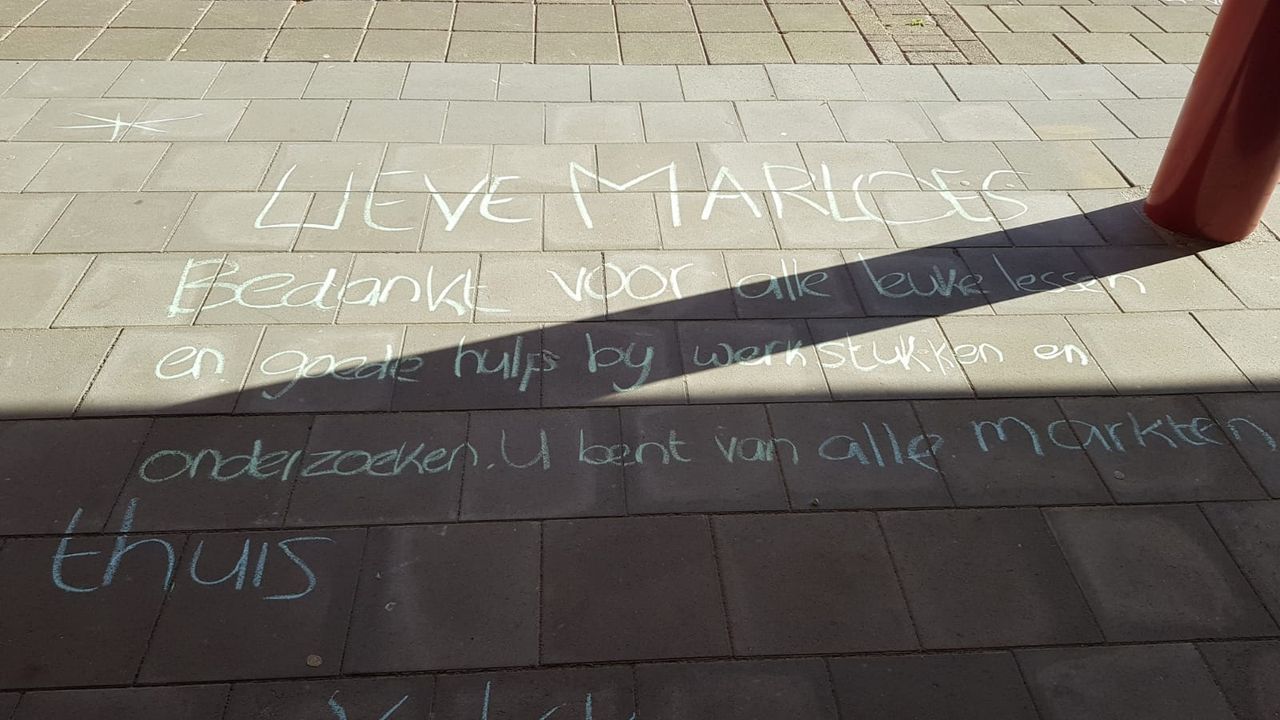 LIEVE MARLOES
Bedankt voor alle leuke lessen
en goede hulp by werkstukken en
onderzoeken. U bent van alle markten
thuis